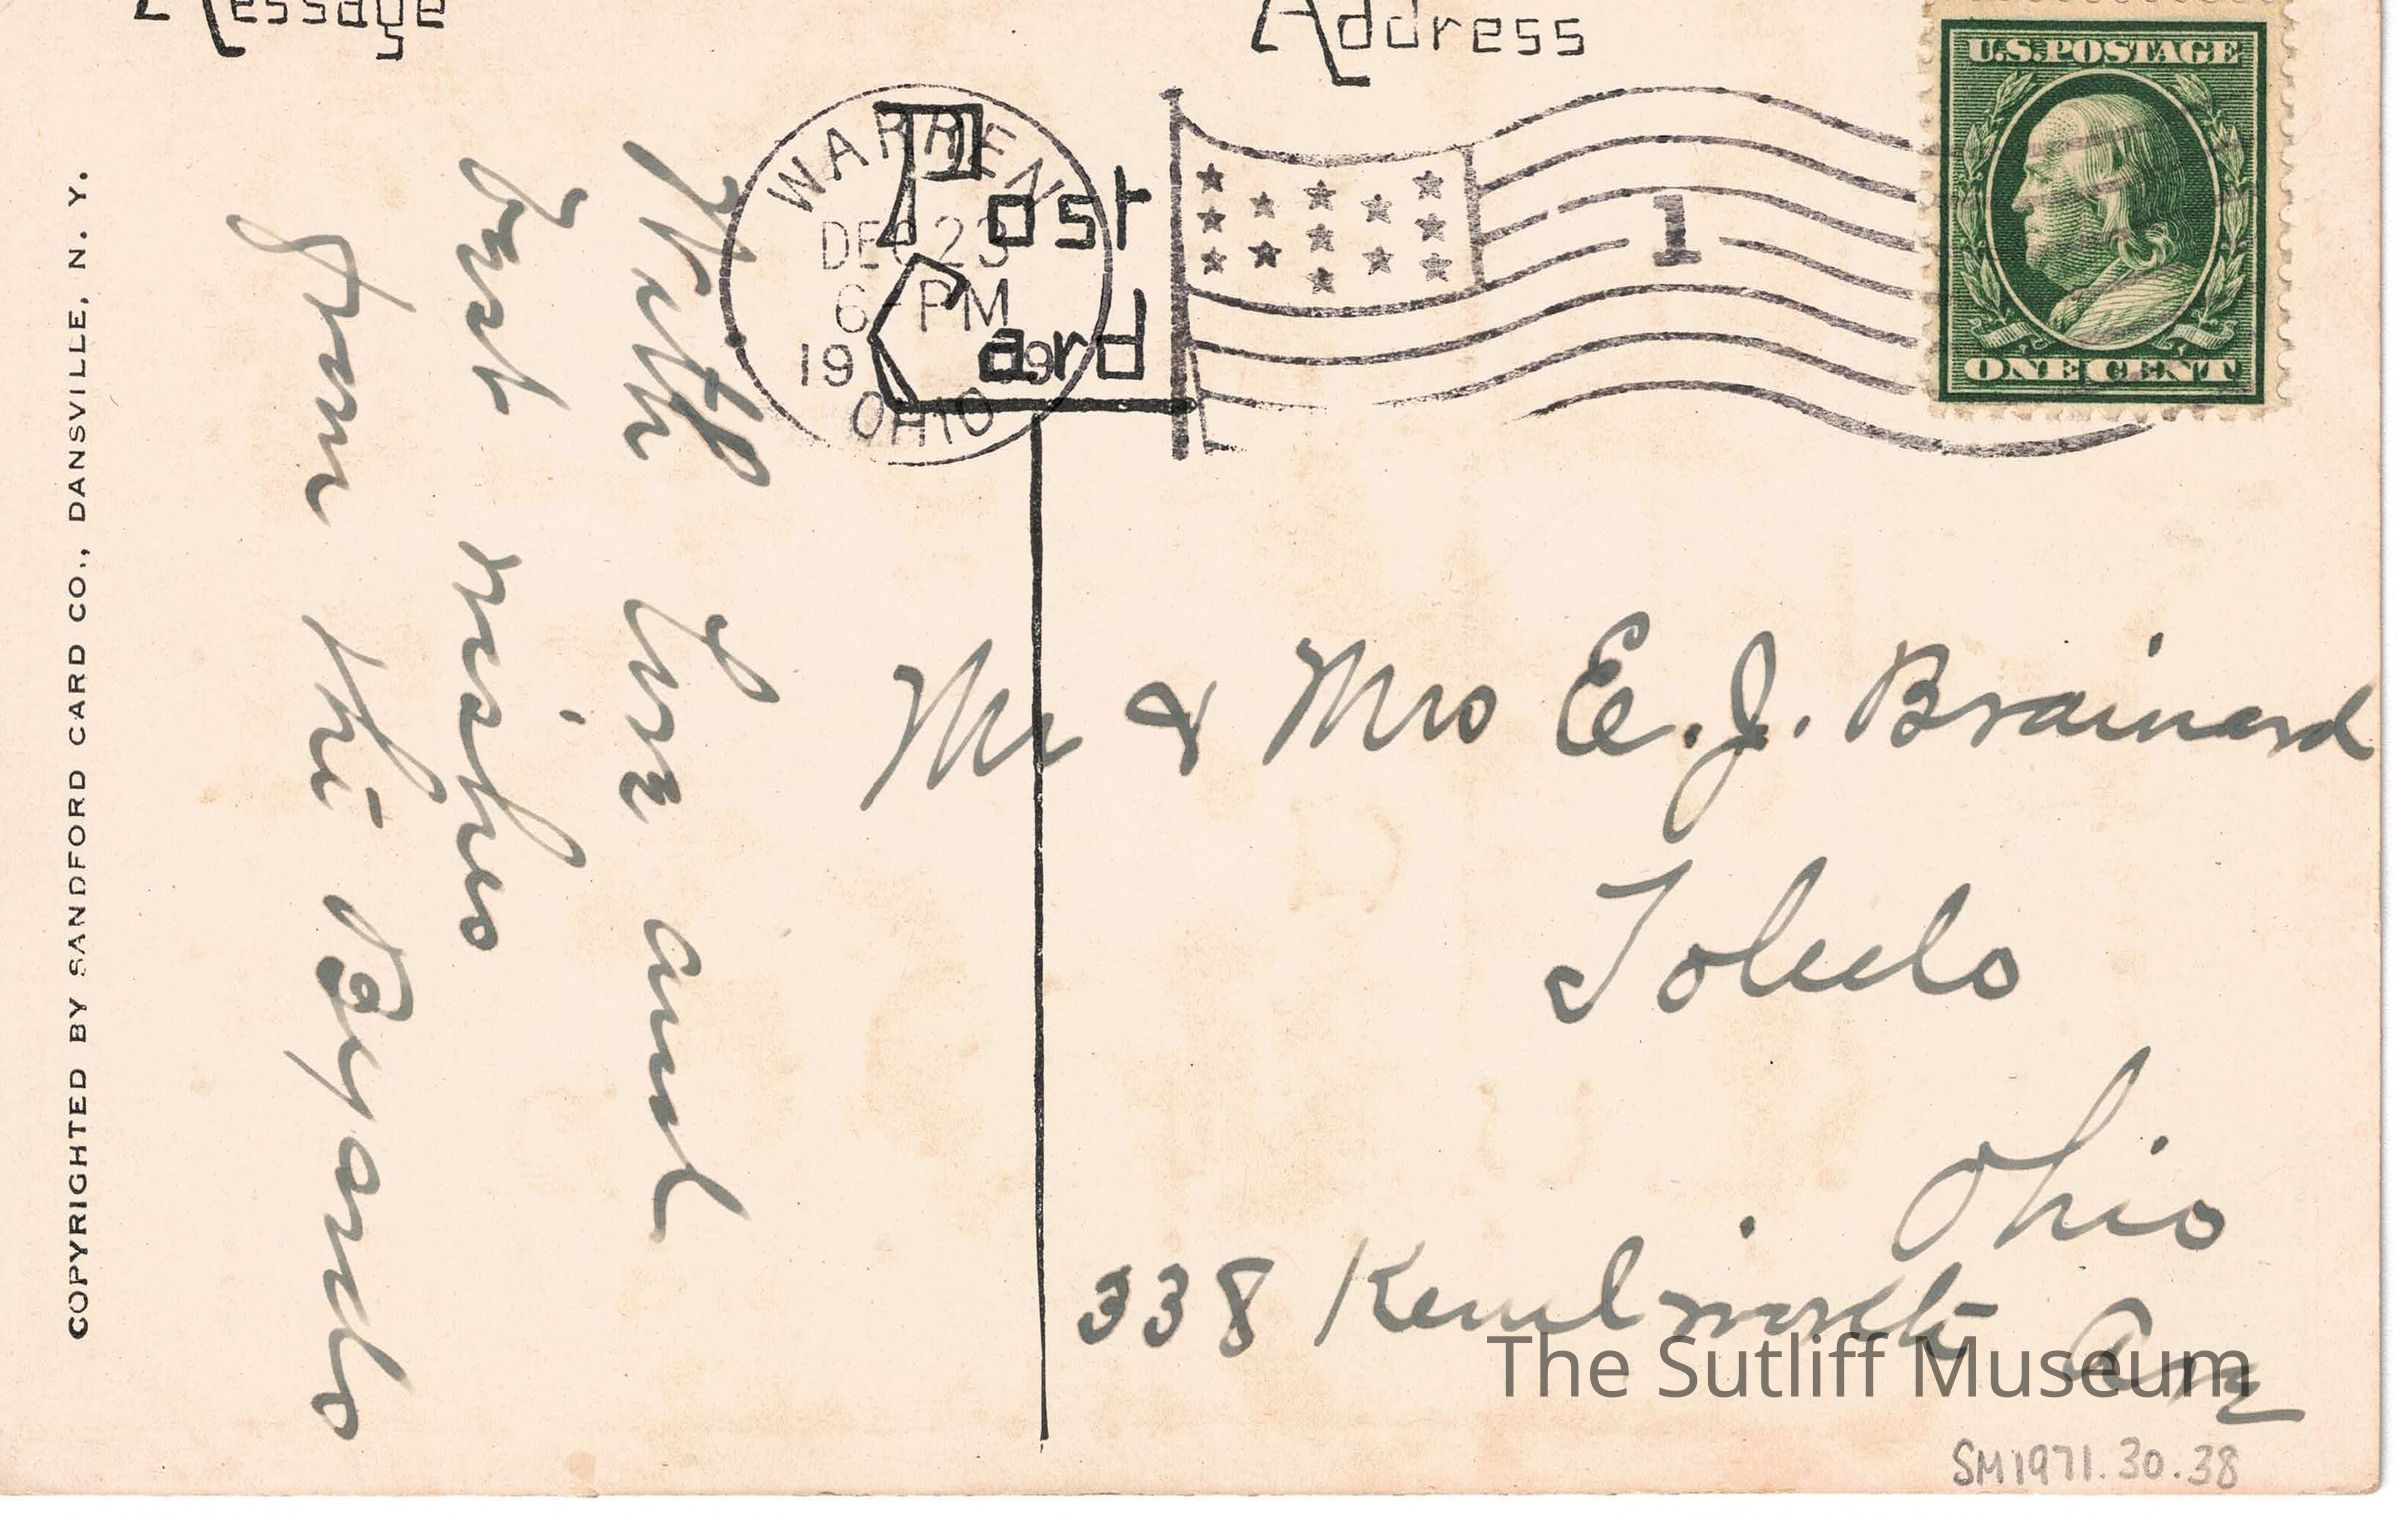 Message
Address
Post
Card
WARREN
DEC 23
6 - PM
1909
OHIO
1
U.S. POSTAGE
ONE CENT
With love and
best wishes
from the Byards
Mr & Mrs E. J. Brainard
Toledo
Ohio
338 Kenilworth Av
The Sutliff Museum
SM1971.30.38
COPYRIGHTED BY SANDFORD CARD CO., DANSVILLE, N. Y.